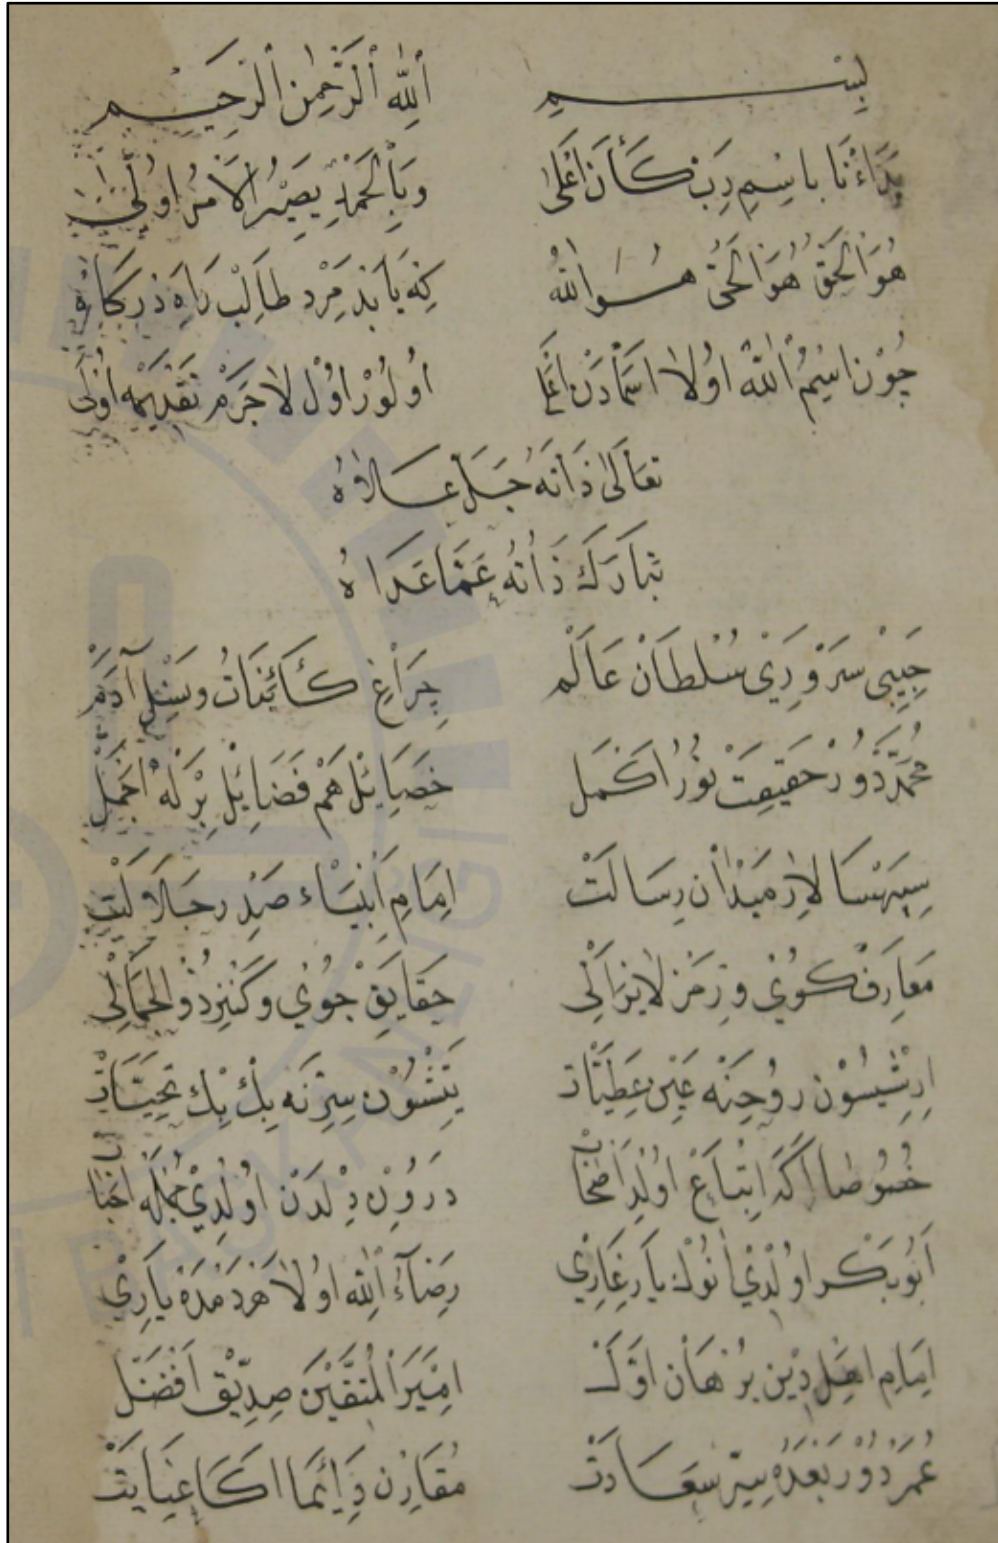 بِسْمِ اللّٰهِ الرَّحْمٰنِ الرَّحِيمِ
بَدَاءْنَا بِاسْمِ رَبٍّ كَانَ اَعْلٰى وَبِالْحَمْدِ يَصِيرُ الْاَمْرُ اُولٰى
هُوَ الْحَقُّ هُوَ الْحَىُّ هُوَ اللّٰهُ كِه يَابَدْ مَرْدِ طَالِبْ رَاهِ دَرْكَاهْ
چُونْ اسْمُ اللّٰهُ اوُلَا اسْمَادَنْ اَعْلٰى اوُلُورْ اوُلْ لَاجَرَمْ تَقْدِيمَه اَوْلٰى
تَعَالٰى ذَاتَهُ جَلَّ عَلَاهُ
تَبَارَكَ ذَاتُهُ عَمَّا عَدَاهُ
حَبِيبِى سَرْوَرِى سُلْطَانْ عَالَمْ چِرَاغِ كَائِنَاتُ وَنَسْلِ آدَمْ
مُحَمَّدْ دُورْ حَقِيقَتْ نُورُ اَكْمَلْ خَصَائِلْ هَمْ فَضَائِلْ بِرْلَه اَجْمَلْ
سِپَهْسَالَارِ مَيْدَانِ رِسَالَتْ اِمَامِ اَنْبِيَاءِ صَدْرِ جَلَالَتْ
مَعَارِفْ كُوىِ وَ رَمْزِ لَايَزَالِى حَقَايِقْ جُوىِ وَ كَنْزِ ذُو الْجَمَالِى
اِرِشْسُونْ رُوحِنَه عَيْنِ عَطِيَّاتْ يَتِشْسُونْ سِرِّنَه بِكْ بِكْ تَحِيَّاتْ
خُصُوصًا اَكَه اِتْبَاعْ اوُلَدْ اَصْحَابْ دَرُونِ دِلْدَنْ اوُلْدِى جُمْلَه اَحْبَابْ
اَبُو بَكْر اوُلْدِى اَنُوكْ يَارِ غَارِى رِضَاءُ اللّٰه اوُلَا هَرْ دَمْدَه يَارِى
اِمَامِ اهْلِ دِينْ بُرْهَانِ اوَّلْ امِيرَ الْمُتَّقِينَ صِدِّيقِ اَفْضَلْ
عُمَرْ دُورْ بَعْدَهُ سِرِّ سَعَادَتْ مُقَارِنْ دَائِمَا اكَا عِنَايَتْ